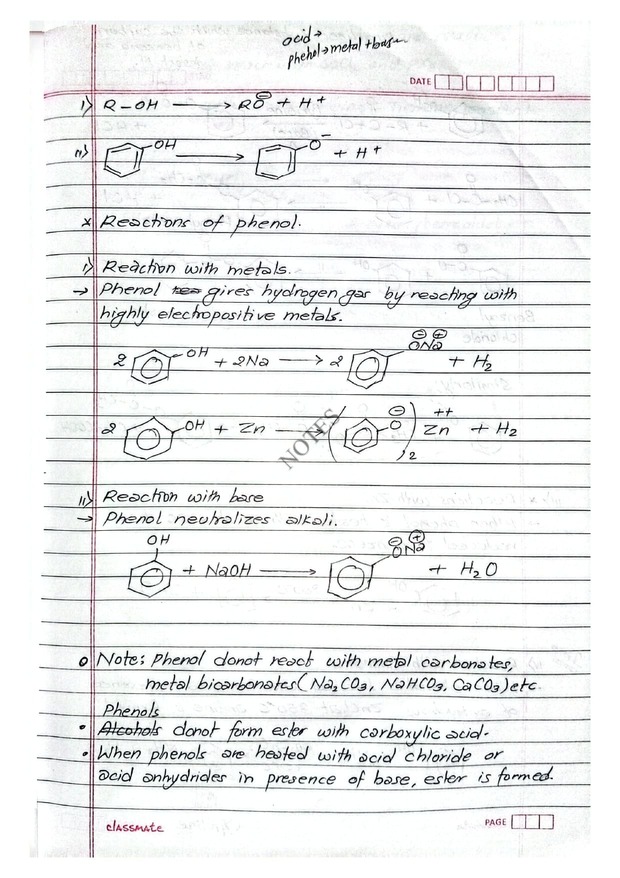 acid→
phenol→metal+base
DATE
i) R-OH ⟶ RO⊖ + H+
ii) OH ⟶ O- + H+
x Reactions of phenol.
i) Reaction with metals.
→ Phenol gives hydrogen gas by reacting with
highly electropositive metals.
2 OH + 2Na ⟶ 2 O⊖Na⊕ + H2
2 OH + Zn ⟶ ( O⊖ )2 Zn++ + H2
NOTES
ii) Reaction with base
→ Phenol neutralizes alkali.
OH + NaOH ⟶ O⊖Na⊕ + H2O
o Note: Phenol donot react with metal carbonates,
metal bicarbonates (Na2CO3, NaHCO3, CaCO3) etc.
Phenols
• Alcohols donot form ester with carboxylic acid.
• When phenols are heated with acid chloride or
acid anhydrides in presence of base, ester is formed.
classmate
PAGE